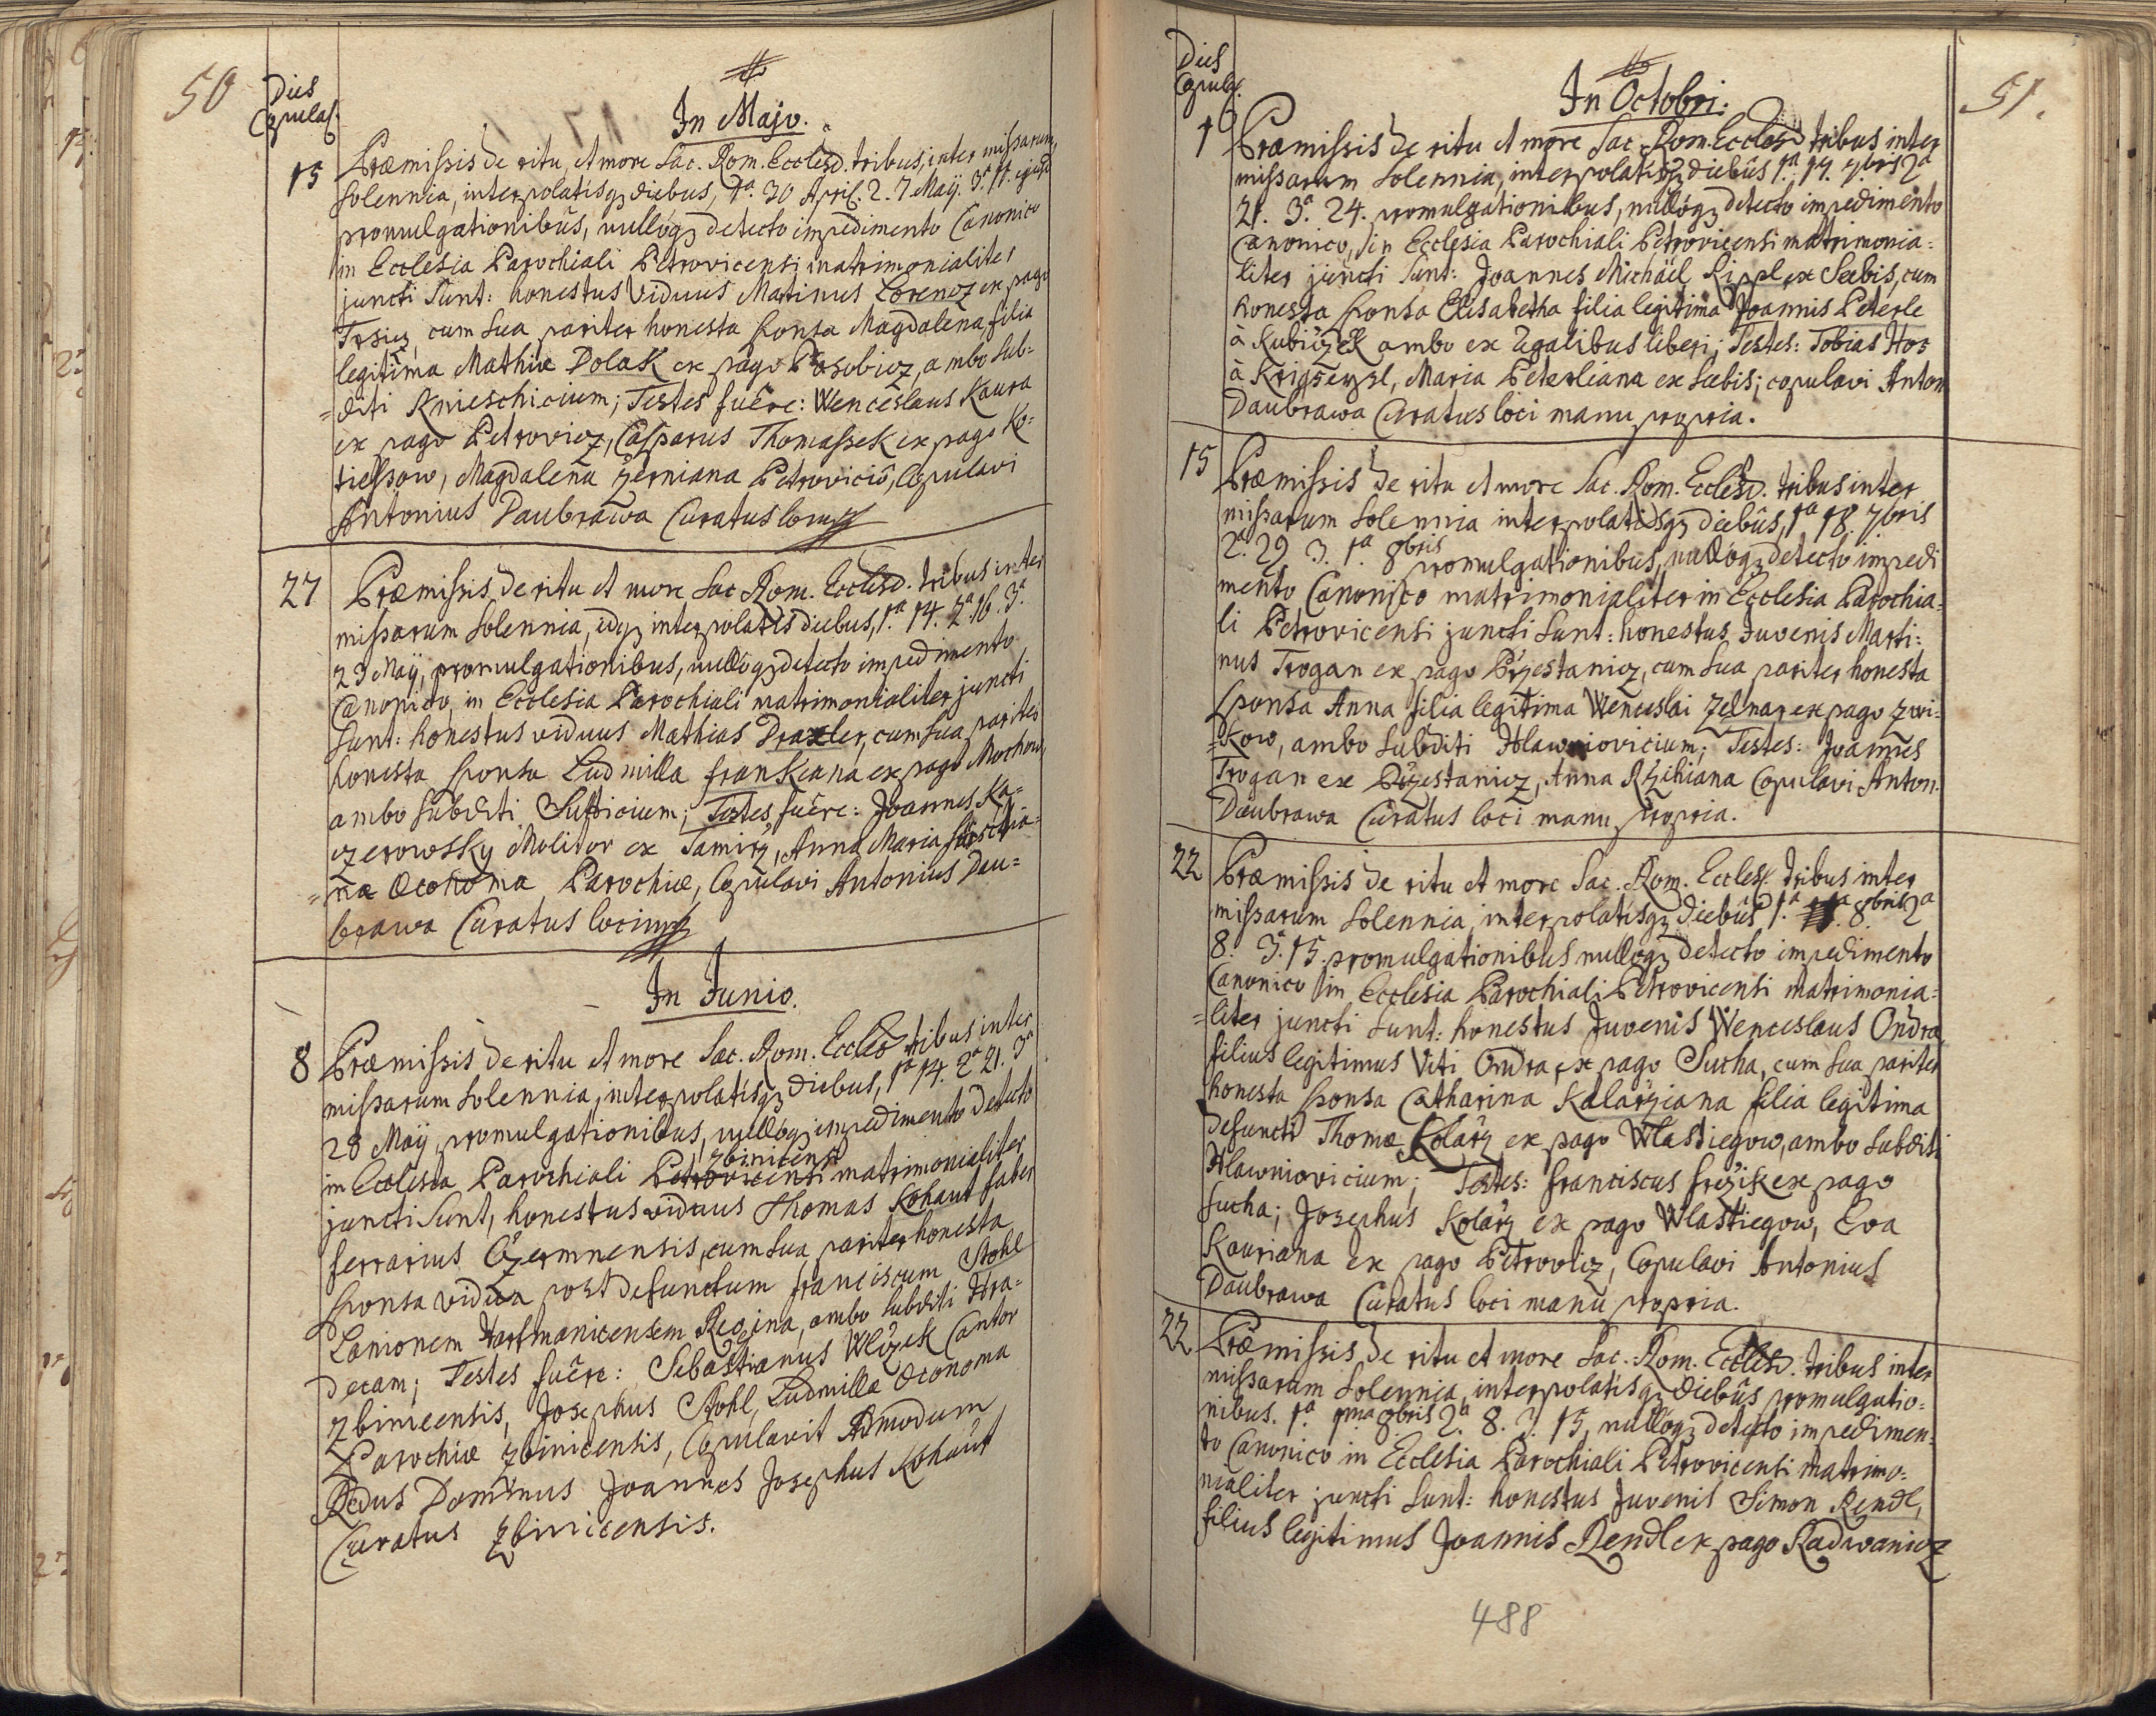 50
Dies
Copulaõ.
In Majo.
15
Præmissis de ritu et more Sac. Rom. Eccles. tribus, inter missarum
Solennia, interpolatisq diebus, 1.a 30 April. 2. 7 Maij. 3.a 11. ejusd
promulgationibus, nulloq detecto impedimento Canonico
in Ecclesia Parochiali Petrovicensi matrimonialiter
juncti Sunt: honestus Viduus Martinus Lorencz ex pago
Trsicz, cum Sua pariter honesta Sponsa Magdalena filia
legitima Mathiæ Dolak ex pago Posobicz, ambo Sub=
=diti Knieschicium; Testes fuêre: Wenceslaus Kaura
ex pago Petrovicz, Casparus Thomassek ex pago Ko=
tiessow, Magdalena Zerniana Petrovicio, Copulavi
Antonius Daubrawa Curatus loci
27
Præmissis de ritu et more Sac Rom. Eccles. tribus inter
missarum Solennia, idq interpolatis diebus, 1.a 14. 2.a 16. 3.a
23 Maij, promulgationibus, nulloq detecto impedimento
Canonico, in Ecclesia Parochiali matrimonialiter juncti
Sunt: honestus viduus Mathias Draxler, cum Sua pariter
honesta Sponsa Ludmilla Frankiana ex pago Mochow
ambo Subditi Sutticium; Testes fuêre: Joannes Ka=
czerowsky Molitor ex Jamicz, Anna Maria
=na Oeconoma Parochiæ, Copulavi Antonius Dau=
brawa Curatus loci mp
In Junio.
8
Præmissis de ritu et more Sac. Rom. Eccles tribus inter
missarum Solennia, interpolatisq diebus, 1.a 14. 2.a 21. 3.a
28 Maij, promulgationibus, nulloq impedimento detecto
Zbinicensi
in Ecclesia Parochiali Petrovicensi matrimonialiter
juncti Sunt, honestus viduus Thomas Kohaut faber
ferrarius Czermnensis, cum Sua pariter honesta
Sponsa vidua post defunctum Franciscum Stohl
Lanionem Hartmanicensem Regina, ambo Subditi Hra=
decam; Testes fuêre: Sebastianus Wlczek Cantor
Zbinicensis, Josephus Stohl, Ludmilla Oeconoma
Parochiæ Zbinicensis, Copulavit Admodum
Rdus Dominus Joannes Josephus Kohaut
Curatus Zbinicensis.
51.
Dies
Copulaõ.
In Octobri.
1
Præmissis de ritu et more Sac. Rom. Eccles tribus inter
missarum Solennia, interpolatisq diebûs 1.a 17. 7bris 2a
21. 3.a 24. promulgationibus, nulloq detecto impedimento
Canonico, in Ecclesia Parochiali Petrovicensi matrimonia=
liter juncti Sunt: Joannes Michäel Rippl ex Seebis, cum
honesta Sponsa Elisabetha filia legitima Joannis Peterle
à Kubiczek ambo ex Regalibus liberi; Testes: Tobias Hos
à Krigseysl, Maria Peterliana ex Seebis; copulavi Anton
Daubrawa Curatus loci manu propria.
15
Præmissis de ritu et more Sac. Rom. Eccles. tribus inter
missarum Solennia interpolatisq diebûs, 1a 18. 7bris
2.a 29 3. 1.a 8bris promulgationibus, nulloq detecto impedi
mento Canonico matrimonialiter in Ecclesia Parochia=
li Petrovicensi juncti Sunt: honestus Juvenis Marti=
nus Trogan ex pago Przestanicz, cum Sua pariter honesta
Sponsa Anna filia legitima Wenceslai Zelnar ex pago Zwi=
=kow, ambo Subditi Hlawniovicium; Testes: Joannes
Trogan ex Przestanicz, Anna Rzihiana Copulavi Anton.
Daubrawa Curatus loci manu propria.
22
Præmissis de ritu et more Sac. Rom. Eccles. tribus inter
missarum Solennia, interpolatisq diebûs 1.a 1a. 8bris 2a
8. 3.a 15. promulgationibus nulloq detecto impedimento
Canonico in Ecclesia Parochiali Petrovicensi matrimonia=
=liter juncti Sunt: honestus Juvenis Wenceslaus Ondra
filius legitimus Viti Ondra, ex pago Sucha, cum Sua pariter
honesta Sponsa Catharina Kolarziana filia legitima
Defuncti Thomæ Kolarz ex pago Wlastiegow, ambo Subditi
Hlawniovicium; Testes: Franciscus Frczik ex pago
Sucha; Josephus Kolarz ex pago Wlastiegow, Eva
Kauriana ex pago Petrovicz, Copulavi Antonius
Daubrawa Curatus loci manu propria.
22
Præmissis de ritu et more Sac. Rom. Eccles. tribus inter
missarum Solennia, interpolatisq diebûs promulgatio=
nibus. 1.a 1ma 8bris 2.a 8. 3. 15, nulloq detecto impedimen=
to Canonico in Ecclesia Parochiali Petrovicensi matrimo=
nialiter juncti Sunt: honestus Juvenis Simon Rendl,
filius legitimus Joannis Rendl ex pago Radwanicz
488